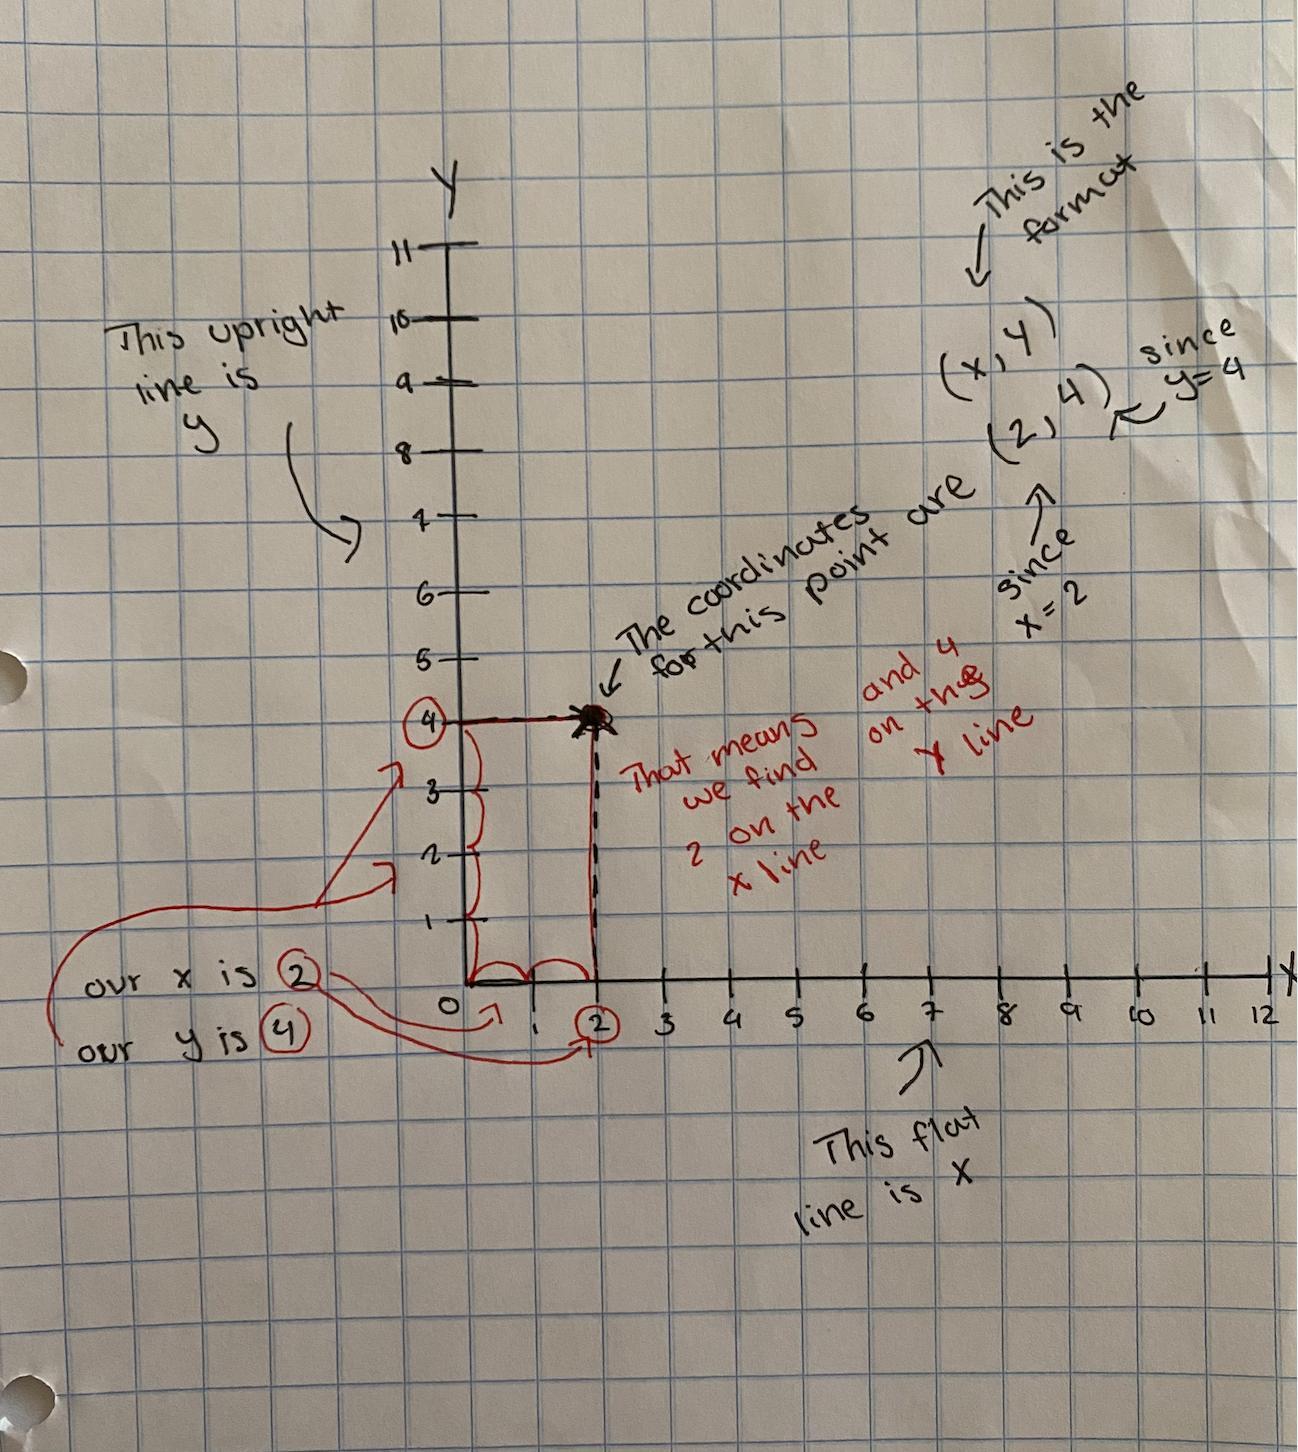 This is the
format
Y
11
10
9
8
7
6
5
4
3
2
1
0
1
2
3
4
5
6
7
8
9
10
11
12
X
This upright
line is
y
(x, y)
(2, 4)
since
y = 4
since
x = 2
The coordinates
for this point are
That means
we find
2 on the
x line
and 4
on the
y line
our x is 2
our y is 4
This flat
line is x